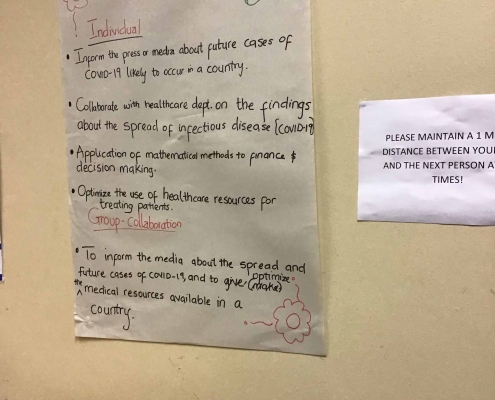 ! Individual
• Inform the press or media about future cases of
COVID-19 likely to occur in a country.
• Collaborate with healthcare dept. on the findings
about the spread of infectious disease [COVID-19]
• Application of mathematical methods to finance &
decision making.
• Optimize the use of healthcare resources for
treating patients.
Group-Collaboration
• To inform the media about the spread and
future cases of COVID-19, and to give optimize
(make)
the medical resources available in a
country.
PLEASE MAINTAIN A 1 M
DISTANCE BETWEEN YOUR
AND THE NEXT PERSON A
TIMES!